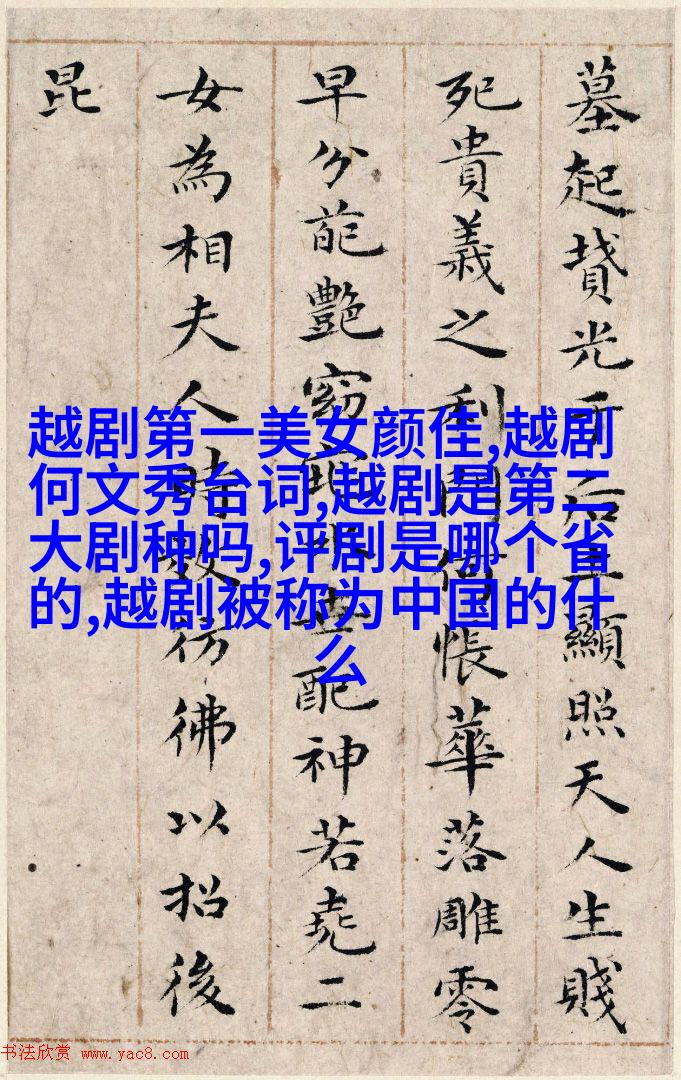 墓起墳光于后土顯照天人生賤
死貴義之利門何悵華落雕零
早分葩艷窈窕永世配神若堯二
女為相夫人時效彷彿以招後
昆
越剧第一美女颜佳,越剧
何文秀台词,越剧是第二
大剧种吗,评剧是哪个省
的,越剧被称为中国的什
么
书法欣赏 www.yac8.com